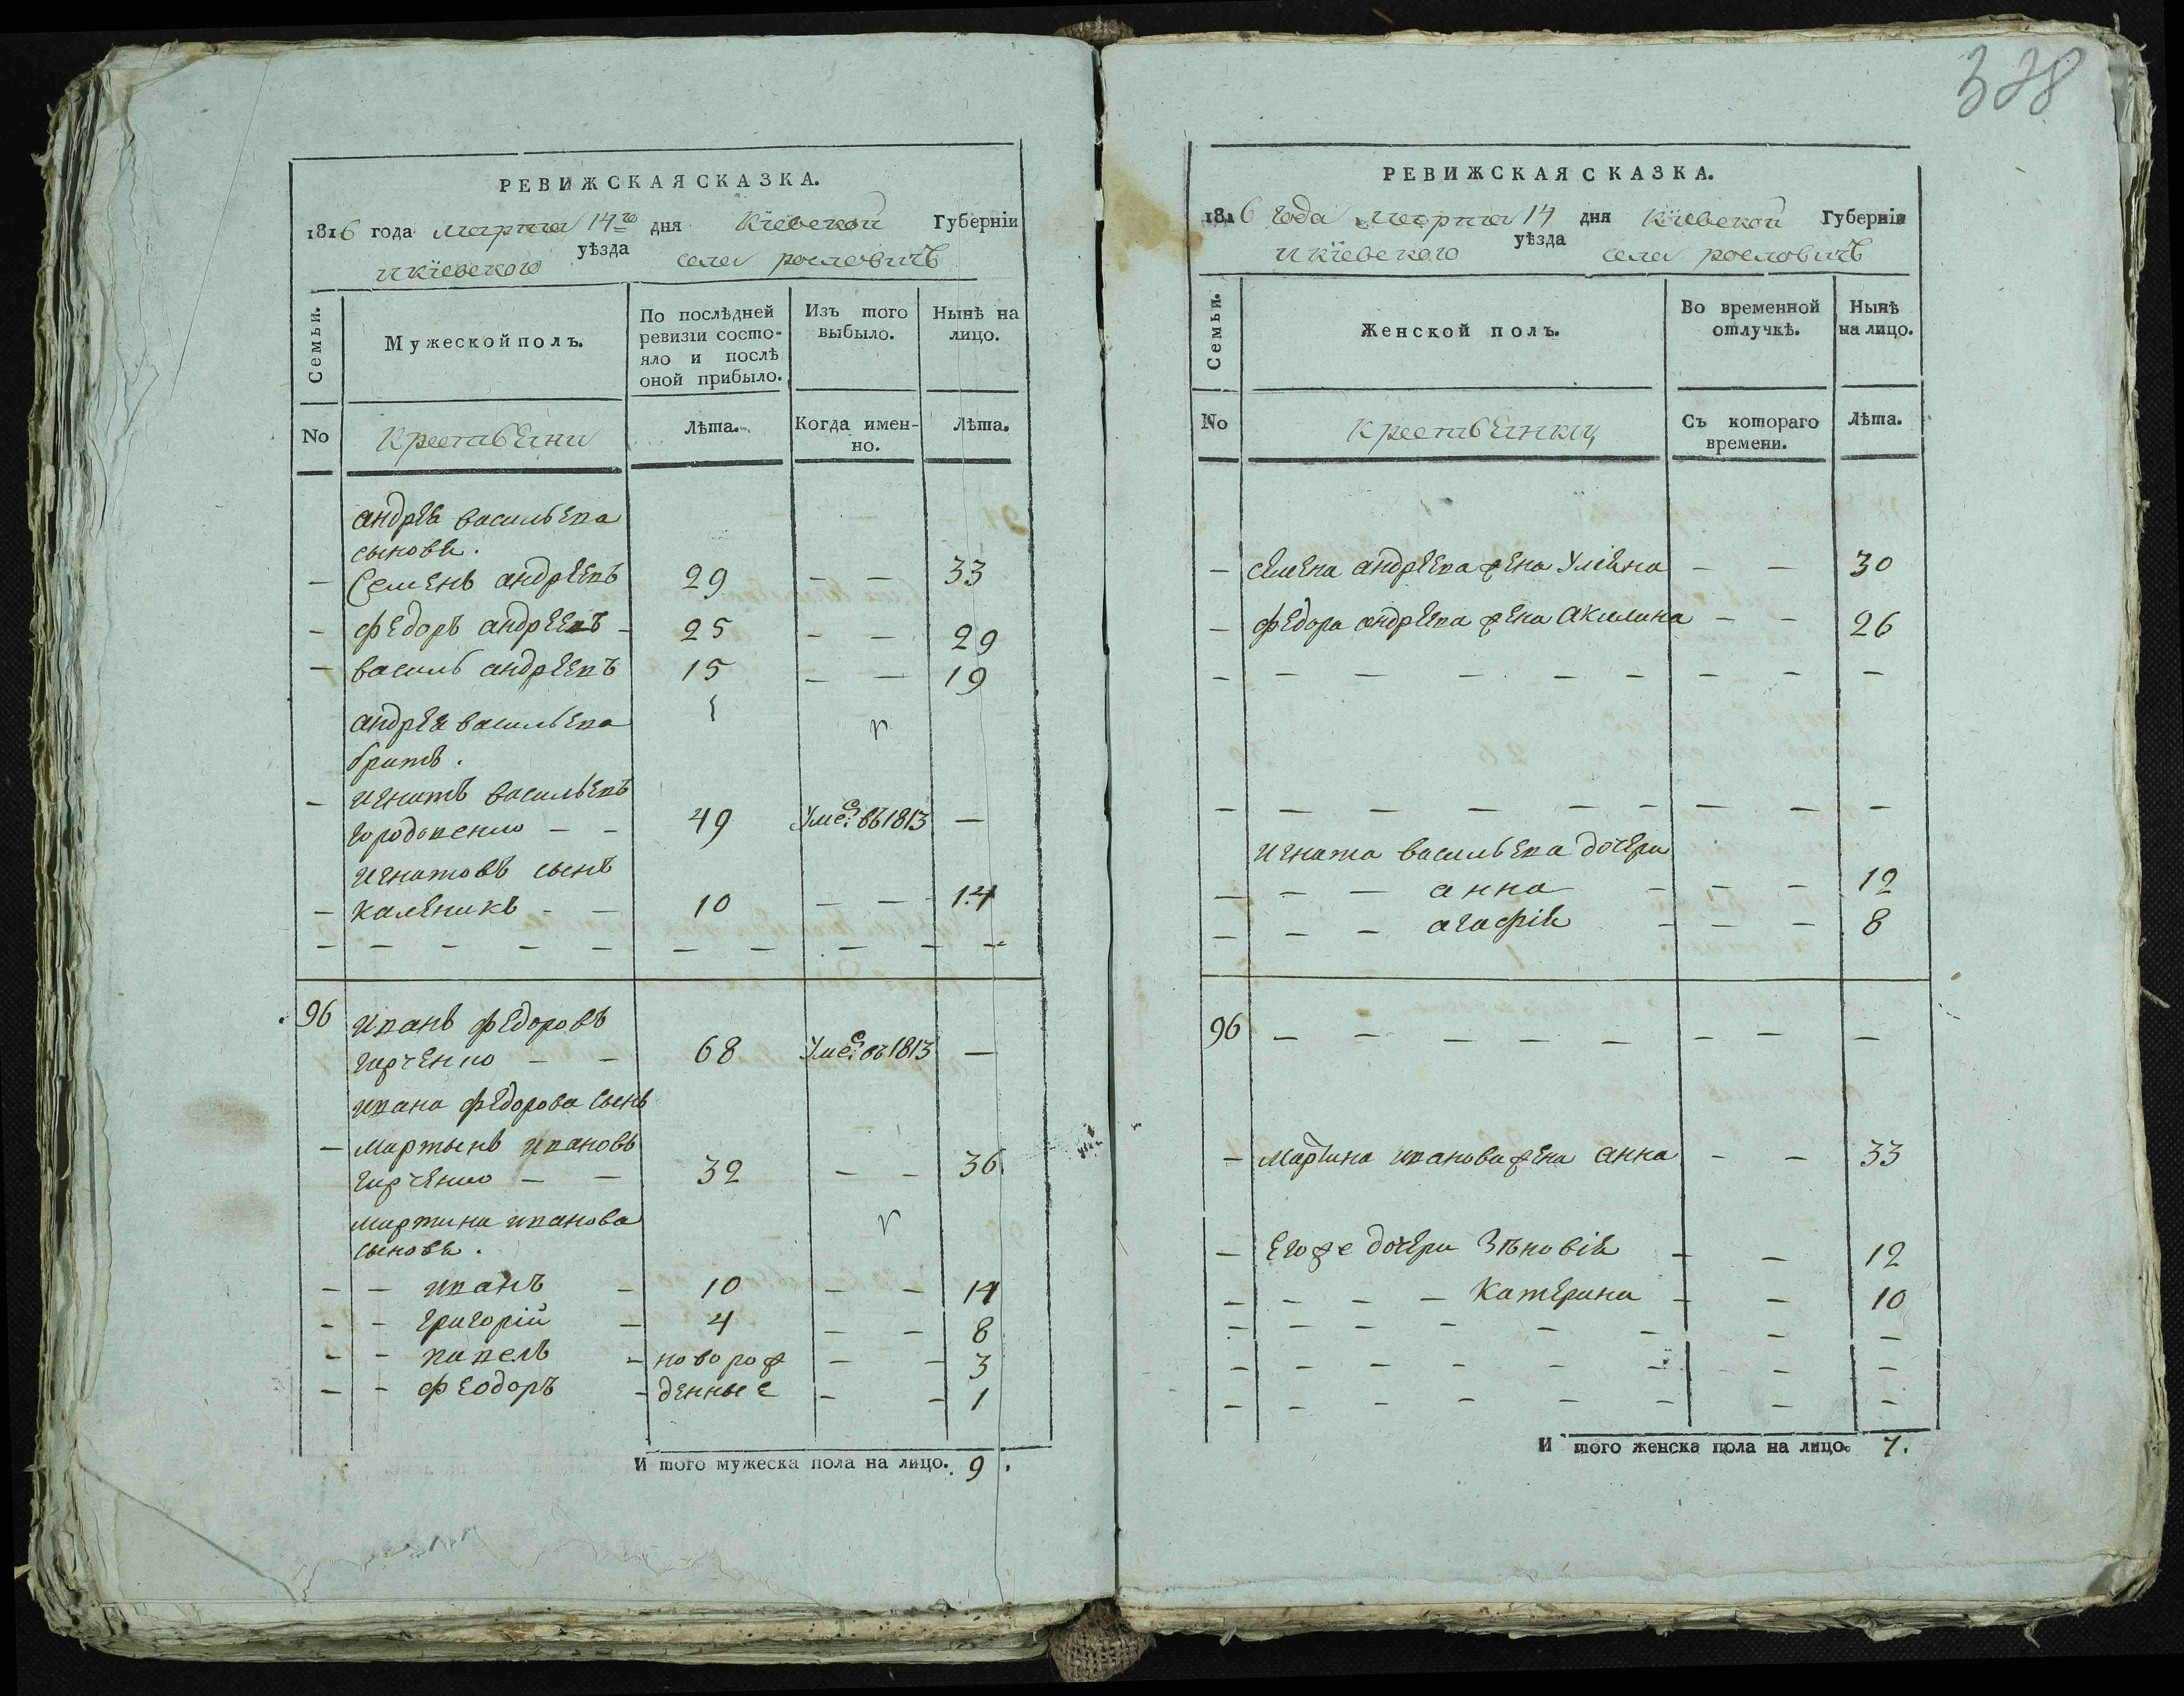 338
РЕВИЖСКАЯ СКАЗКА.
1816 года марта 14го дня Кіевской Губерніи
и кіевского уѣзда села рословичъ
Семьи.
Мужеской полъ.
По послѣдней ревизіи состояло и послѣ оной прибыло.
Изъ того выбыло.
Нынѣ на лицо.
No
Крестьяни
Лѣта.
Когда именно.
Лѣта.
андрея васильева
сыновя.
– Семенъ андреевъ 29 – – 33
– федоръ андреевъ – 25 – – 29
– василь андреевъ 15 – – 19
андрея васильева
братъ.
– игнатъ васильевъ
– – 49 Умеръ въ 1813 –
игнатовъ сынъ
– каленикъ – – 10 – – 14
96 иванъ федоровъ
гирченко – – 68 Умеръ въ 1813 –
ивана федорова сынъ
– мартынъ ивановъ
гирченко – – 32 – – 36.
мартина иванова
сыновя.
– – иванъ – 10 – – 14
– – григорій – 4 – – 8
– – павелъ – новорож – – 3
– – феодоръ – денные – – 1
И того мужеска пола на лицо. 9.
РЕВИЖСКАЯ СКАЗКА.
1816 года марта 14 дня Кіевской Губерніи
и кіевского уѣзда села рословичъ
Семьи.
Женской полъ.
Во временной отлучкѣ.
Нынѣ на лицо.
No
Крестьянки
Съ котораго времени.
Лѣта.
– семена андреева жена Уляна – – 30
– федора андреева жена Акилина – – 26
игната васильева дочери
– – – анна – – – 12
– – – агафія – – – 8
96 – – – – – – – – –
– Мартина иванова жена анна – – 33
– Его же дочери Зѣновія – – 12
– – – – Катерина – – 10
И того женска пола на лицо. 7.